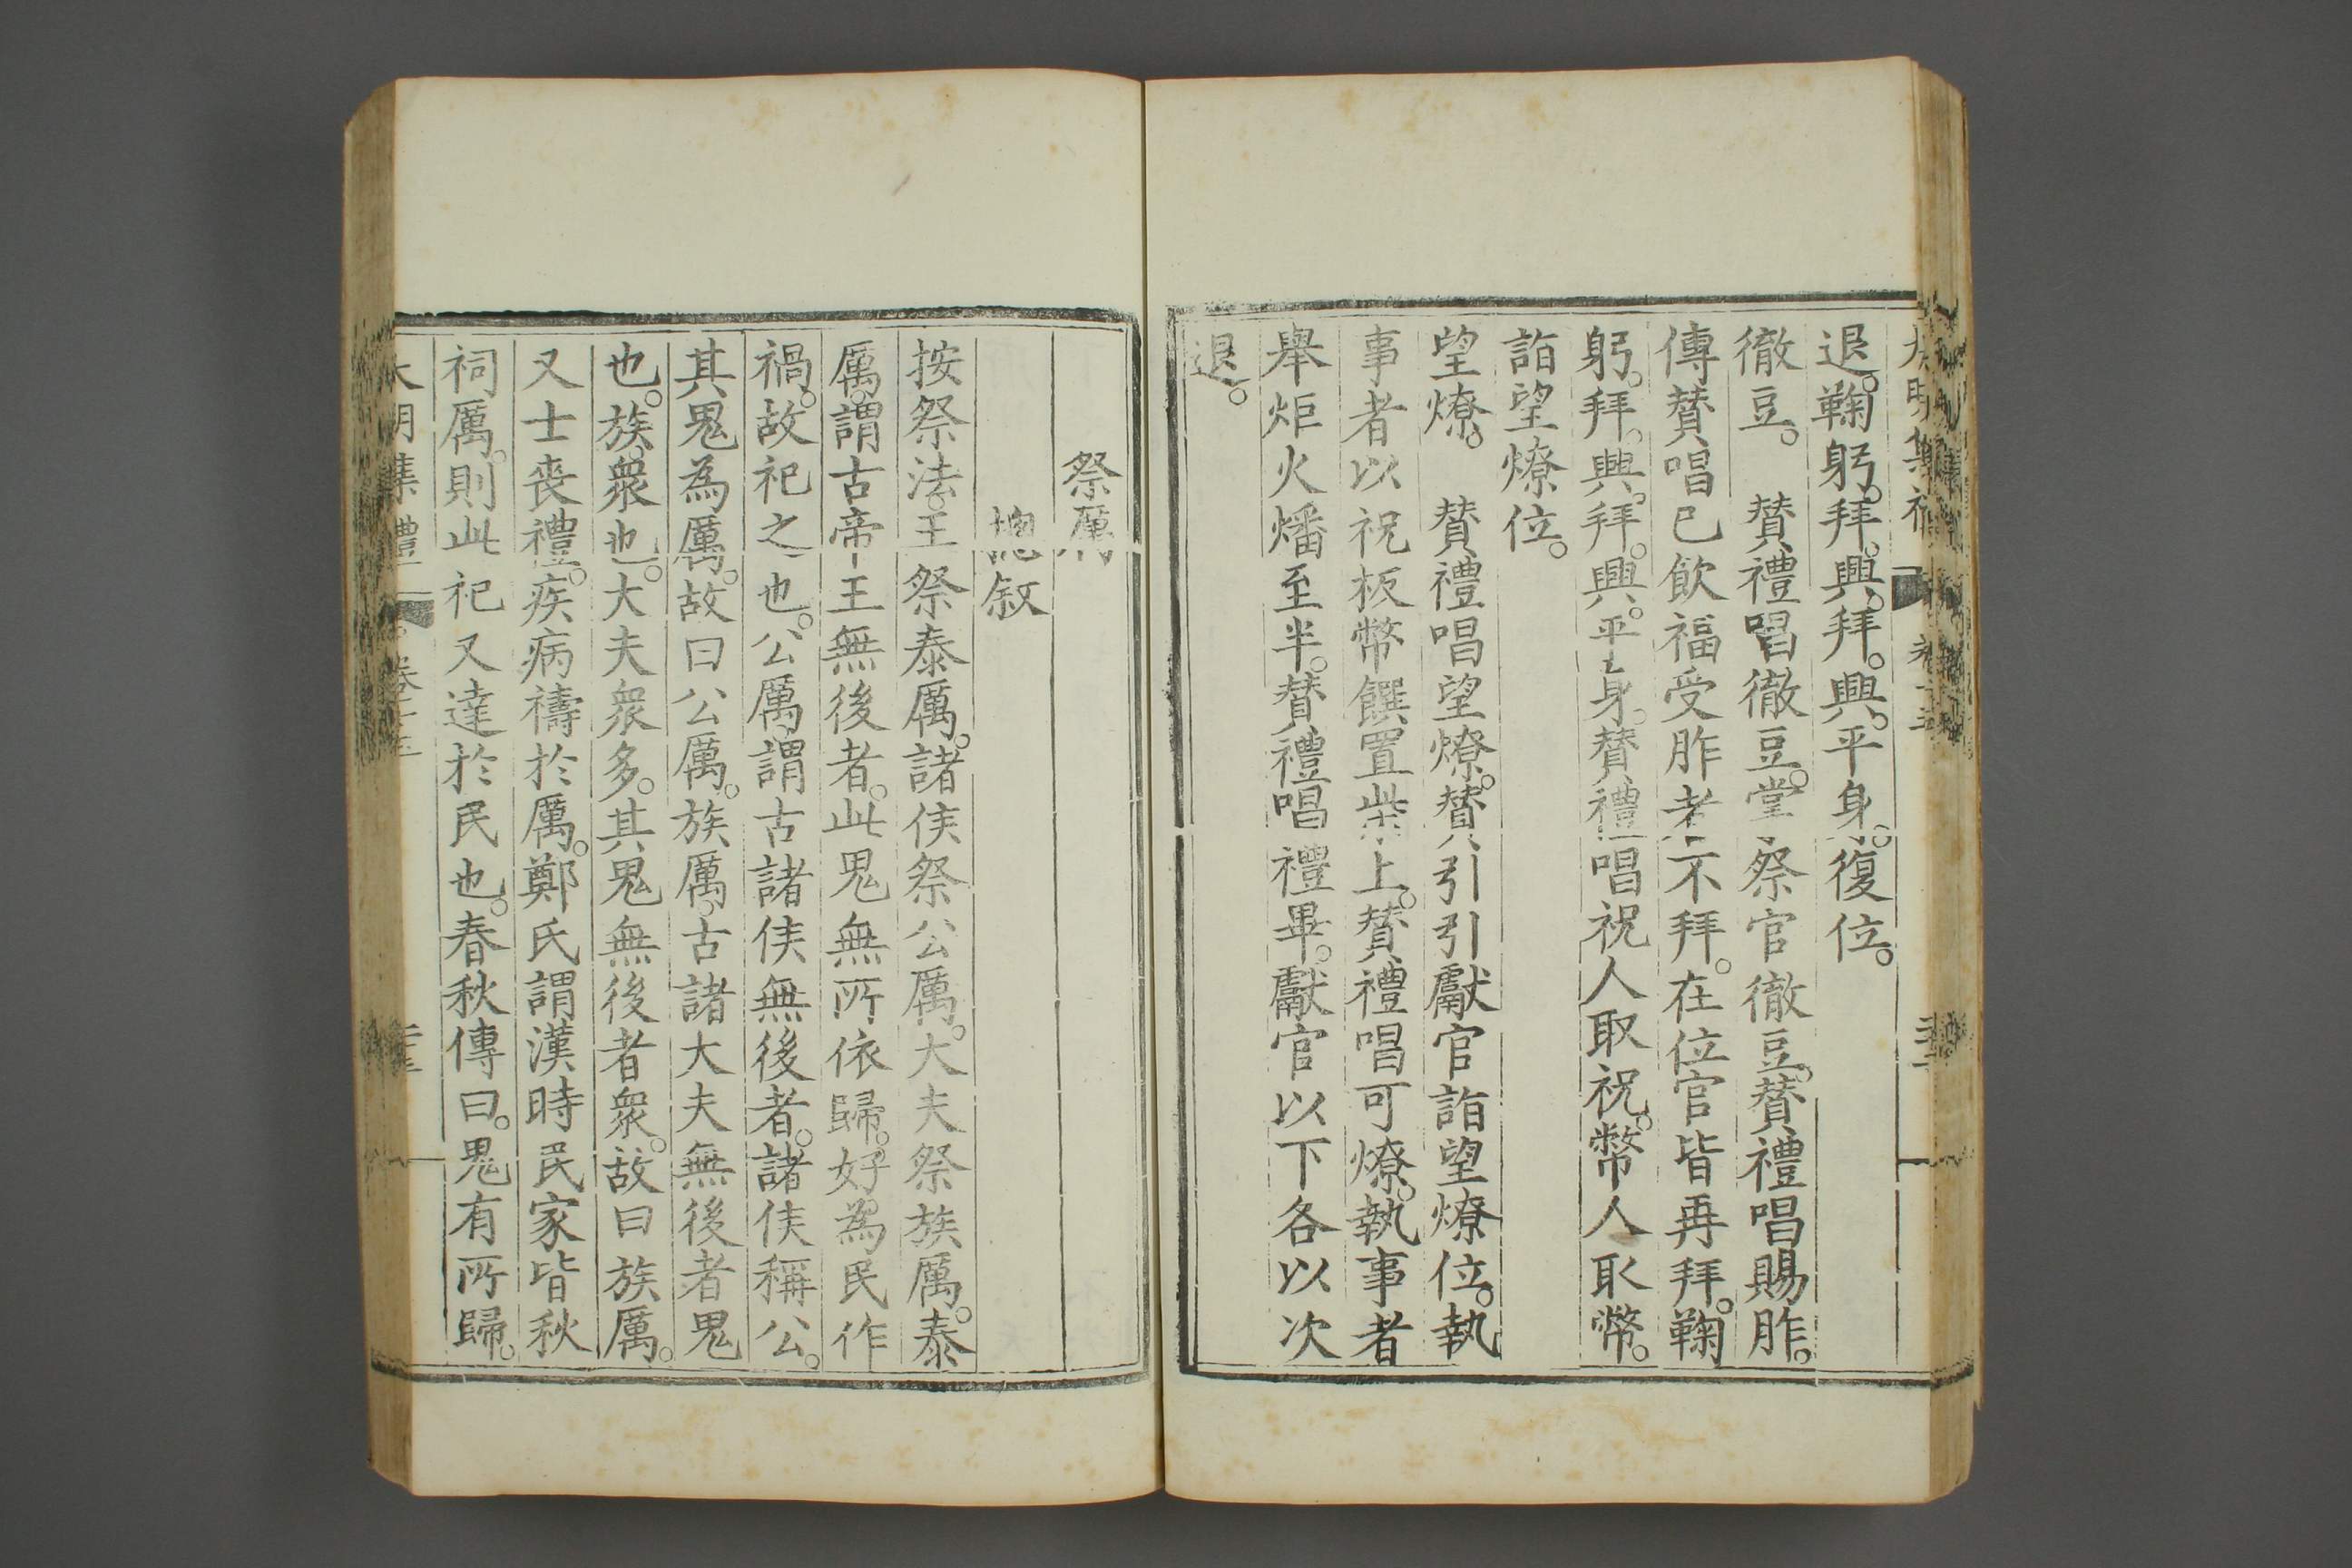 退。鞠躬。拜。興。拜。興。平身。復位。
徹豆。　賛禮唱徹豆。掌祭官徹豆。賛禮唱賜胙。
傳賛唱已飲福受胙者不拜。在位官皆再拜。鞠
躬。拜。興。拜。興。平身。賛禮唱祝人取祝。幣人取幣。
詣望燎位。
望燎。　賛禮唱望燎。賛引引獻官詣望燎位。執
事者以祝板幣饌置柴上。賛禮唱可燎。執事者
舉炬火燔至半。賛禮唱禮畢。獻官以下各以次
退。
祭厲
總敘
按祭法。王祭泰厲。諸侯祭公厲。大夫祭族厲。泰
厲。謂古帝王無後者。此鬼無所依歸。好為民作
禍。故祀之也。公厲。謂古諸侯無後者。諸侯稱公。
其鬼為厲。故曰公厲。族厲。古諸大夫無後者鬼
也。族。衆也。大夫衆多。其鬼無後者衆。故曰族厲。
又士喪禮。疾病禱於厲。鄭氏謂漢時民家皆秋
祠厲。則此祀又達於民也。春秋傳曰。鬼有所歸。
大明集禮　卷十五